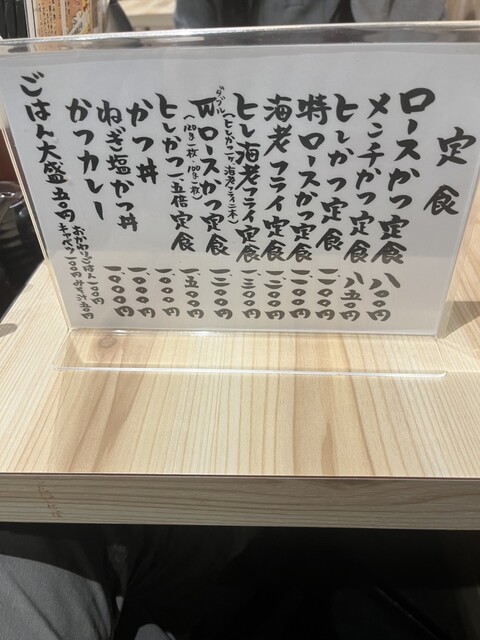 定食
ロースかつ定食 八〇〇円
メンチかつ定食 八五〇円
ヒレかつ定食 一、〇〇〇円
特ロースかつ定食 一、二〇〇円
海老フライ定食 一、二〇〇円
ヒレ海老フライ定食 一、三〇〇円
(ヒレかつ一ヶ、海老フライ二本)
ダブル
Wロースかつ定食 一、二〇〇円
(120g一枚・100g一枚)
ヒレかつ一、五倍定食 一、五〇〇円
かつ丼 一、〇〇〇円
ねぎ塩かつ丼 一、〇〇〇円
かつカレー 一、〇〇〇円
ごはん大盛五〇円
おかわりごはん一〇〇円
キャベツ一〇〇円 みそ汁五〇円